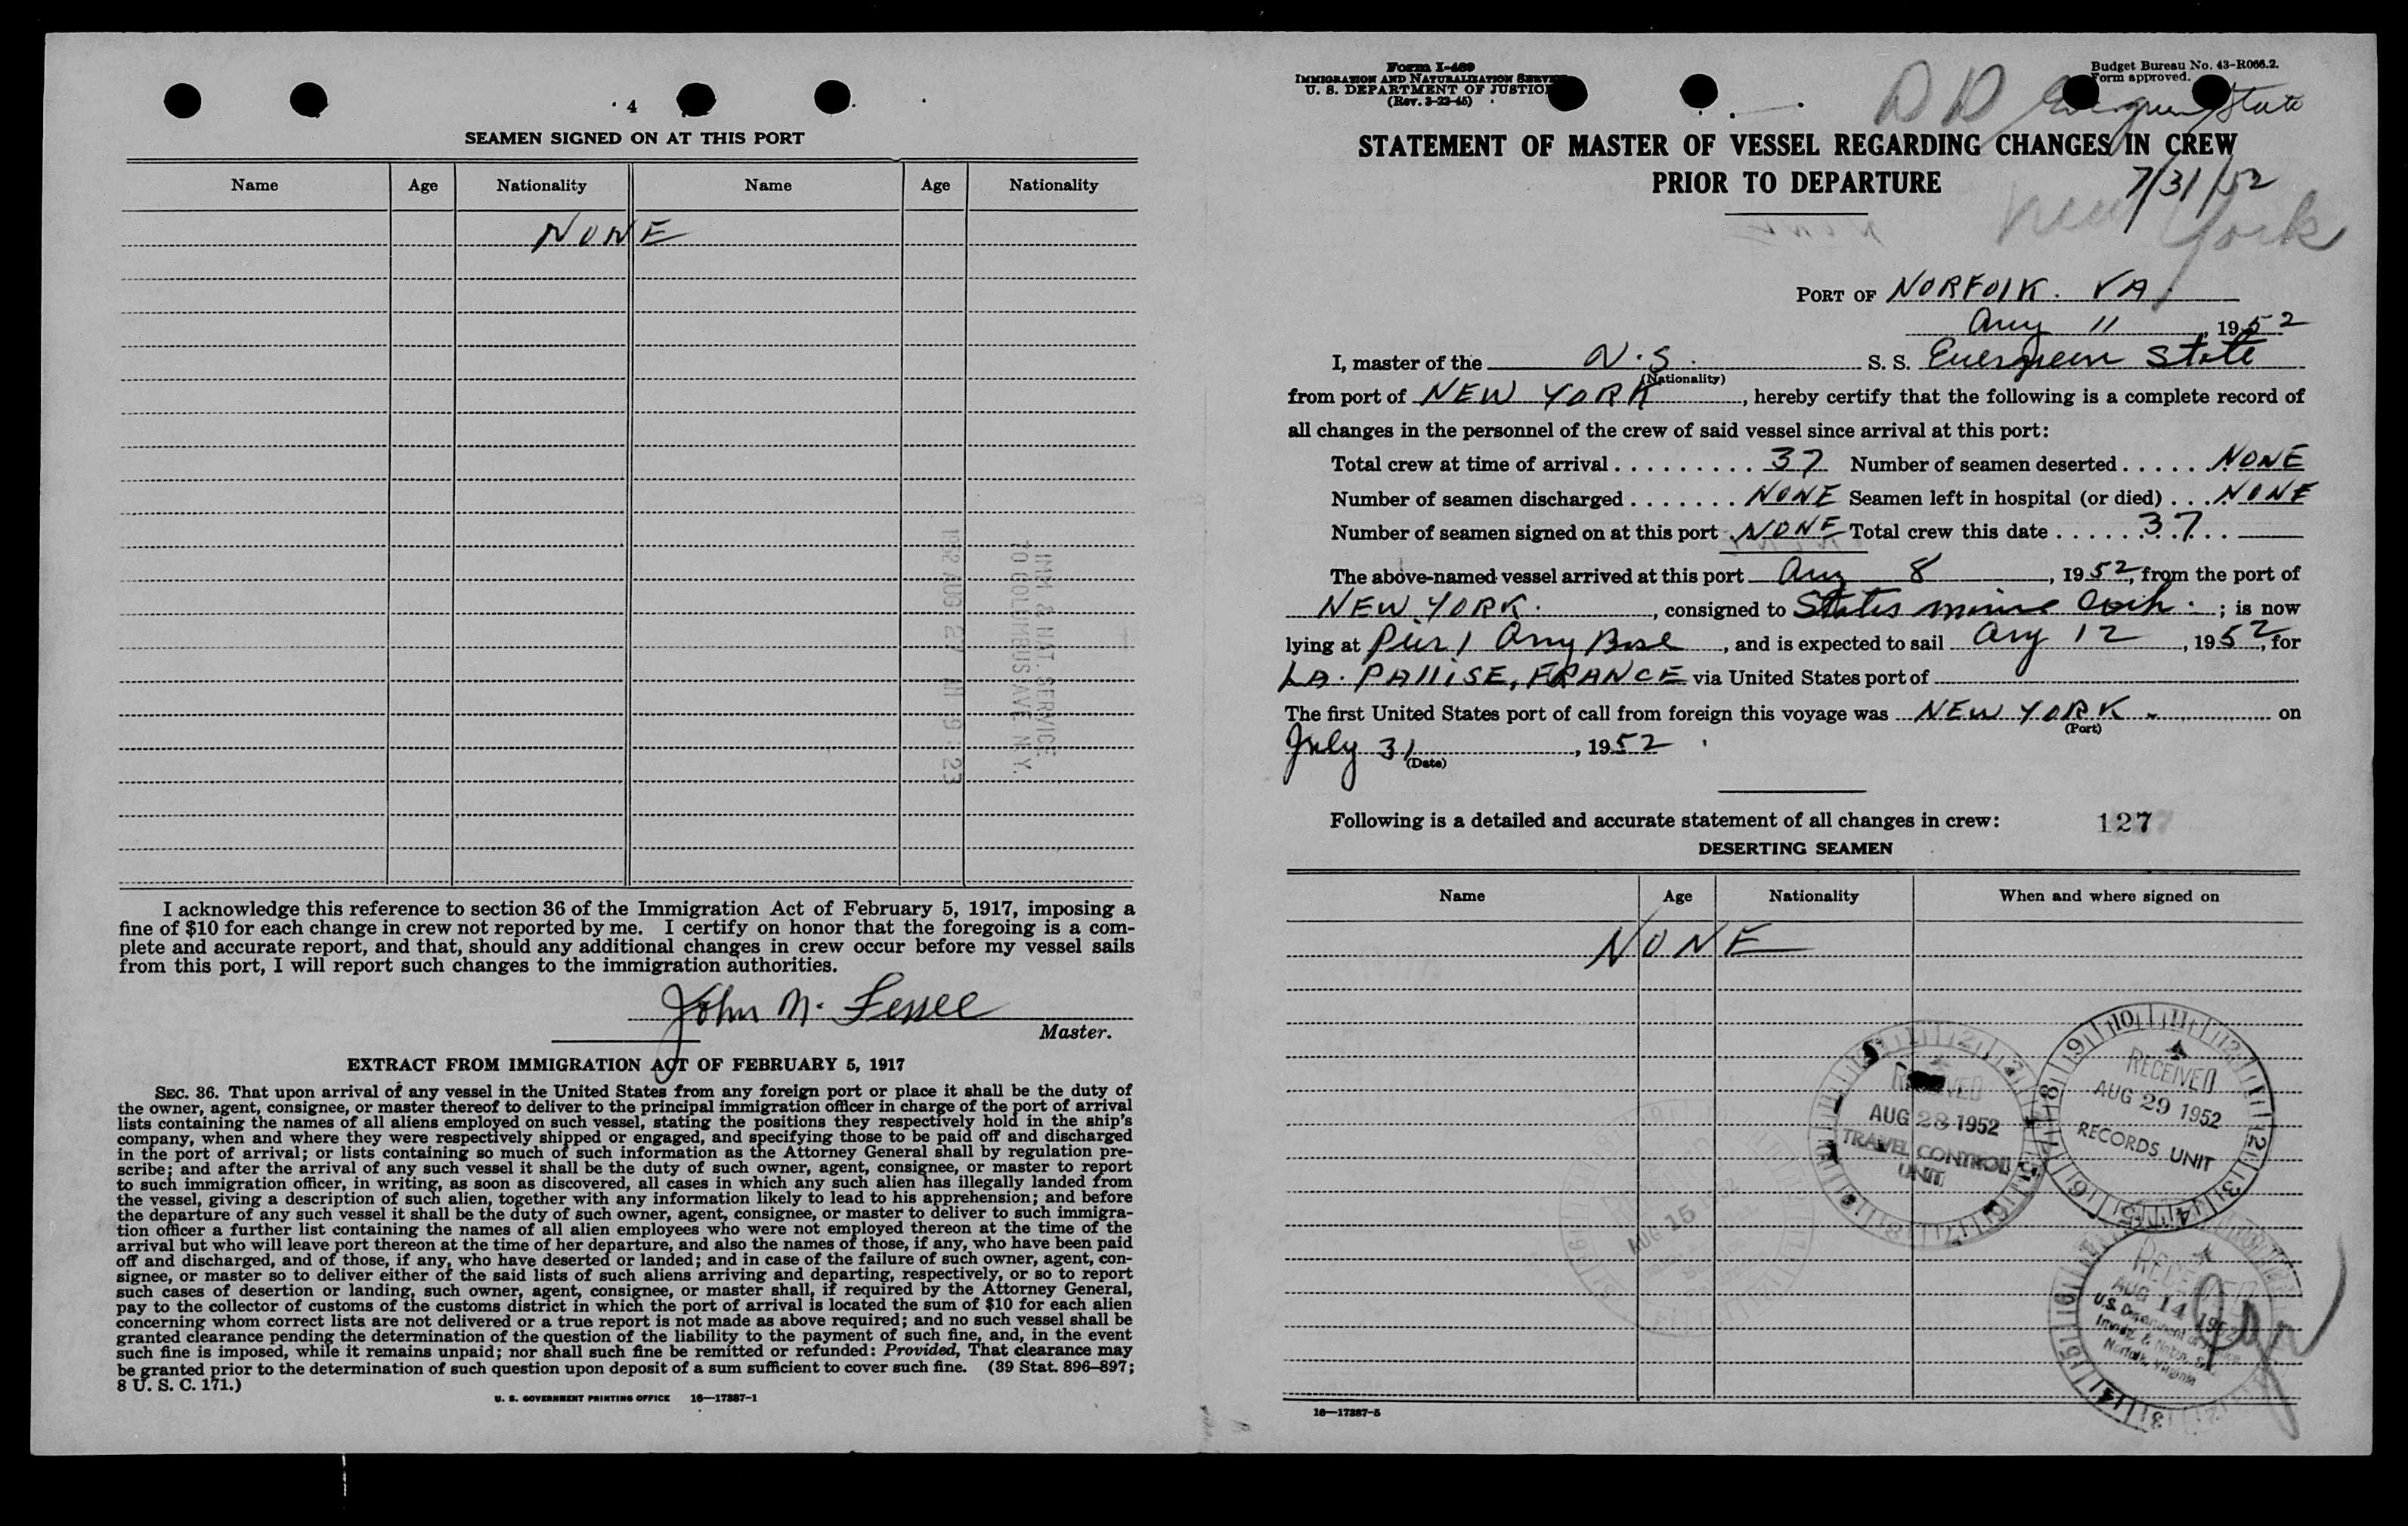 4
SEAMEN SIGNED ON AT THIS PORT
Name Age Nationality Name Age Nationality
NONE
IMM & NAT. SERVICE
70 COLUMBUS AVE N.Y.
1952 AUG 27 AM 9:23
I acknowledge this reference to section 36 of the Immigration Act of February 5, 1917, imposing a
fine of $10 for each change in crew not reported by me. I certify on honor that the foregoing is a com-
plete and accurate report, and that, should any additional changes in crew occur before my vessel sails
from this port, I will report such changes to the immigration authorities.
John M.
Master.
EXTRACT FROM IMMIGRATION ACT OF FEBRUARY 5, 1917
SEC. 36. That upon arrival of any vessel in the United States from any foreign port or place it shall be the duty of
the owner, agent, consignee, or master thereof to deliver to the principal immigration officer in charge of the port of arrival
lists containing the names of all aliens employed on such vessel, stating the positions they respectively hold in the ship's
company, when and where they were respectively shipped or engaged, and specifying those to be paid off and discharged
in the port of arrival; or lists containing so much of such information as the Attorney General shall by regulation pre-
scribe; and after the arrival of any such vessel it shall be the duty of such owner, agent, consignee, or master to report
to such immigration officer, in writing, as soon as discovered, all cases in which any such alien has illegally landed from
the vessel, giving a description of such alien, together with any information likely to lead to his apprehension; and before
the departure of any such vessel it shall be the duty of such owner, agent, consignee, or master to deliver to such immigra-
tion officer a further list containing the names of all alien employees who were not employed thereon at the time of the
arrival but who will leave port thereon at the time of her departure, and also the names of those, if any, who have been paid
off and discharged, and of those, if any, who have deserted or landed; and in case of the failure of such owner, agent, con-
signee, or master so to deliver either of the said lists of such aliens arriving and departing, respectively, or so to report
such cases of desertion or landing, such owner, agent, consignee, or master shall, if required by the Attorney General,
pay to the collector of customs of the customs district in which the port of arrival is located the sum of $10 for each alien
concerning whom correct lists are not delivered or a true report is not made as above required; and no such vessel shall be
granted clearance pending the determination of the question of the liability to the payment of such fine, and, in the event
such fine is imposed, while it remains unpaid; nor shall such fine be remitted or refunded: Provided, That clearance may
be granted prior to the determination of such question upon deposit of a sum sufficient to cover such fine. (39 Stat. 896–897;
8 U. S. C. 171.)
U. S. GOVERNMENT PRINTING OFFICE 16—17387-1
Form I-489
IMMIGRATION AND NATURALIZATION SERVICE
U. S. DEPARTMENT OF JUSTICE
(Rev. 3-22-45)
Budget Bureau No. 43-R066.2.
Form approved.
DD Evergreen State
STATEMENT OF MASTER OF VESSEL REGARDING CHANGES IN CREW
PRIOR TO DEPARTURE
7/31/52
New York
PORT OF NORFOLK. VA.
Aug 11, 1952
I, master of the U.S. S. S. Evergreen State
(Nationality)
from port of NEW YORK, hereby certify that the following is a complete record of
all changes in the personnel of the crew of said vessel since arrival at this port:
Total crew at time of arrival 37 Number of seamen deserted NONE
Number of seamen discharged NONE Seamen left in hospital (or died) NONE
Number of seamen signed on at this port NONE Total crew this date 37
The above-named vessel arrived at this port Aug 8, 1952, from the port of
NEW YORK., consigned to States marine; is now
lying at Pier 1 Army Base, and is expected to sail Aug 12, 1952, for
LA. PALLISE, FRANCE via United States port of
The first United States port of call from foreign this voyage was NEW YORK. on
(Port)
July 31, 1952
(Date)
Following is a detailed and accurate statement of all changes in crew: 127
DESERTING SEAMEN
Name Age Nationality When and where signed on
NONE
RECEIVED
AUG 29 1952
RECORDS UNIT
RECEIVED
AUG 28 1952
TRAVEL CONTROL
UNIT
AUG 15 1952
RECEIVED
AUG 14 1952
U.S. Department of Justice
Immig. & Natzn. S
Norfolk, Virginia
16—17387-5